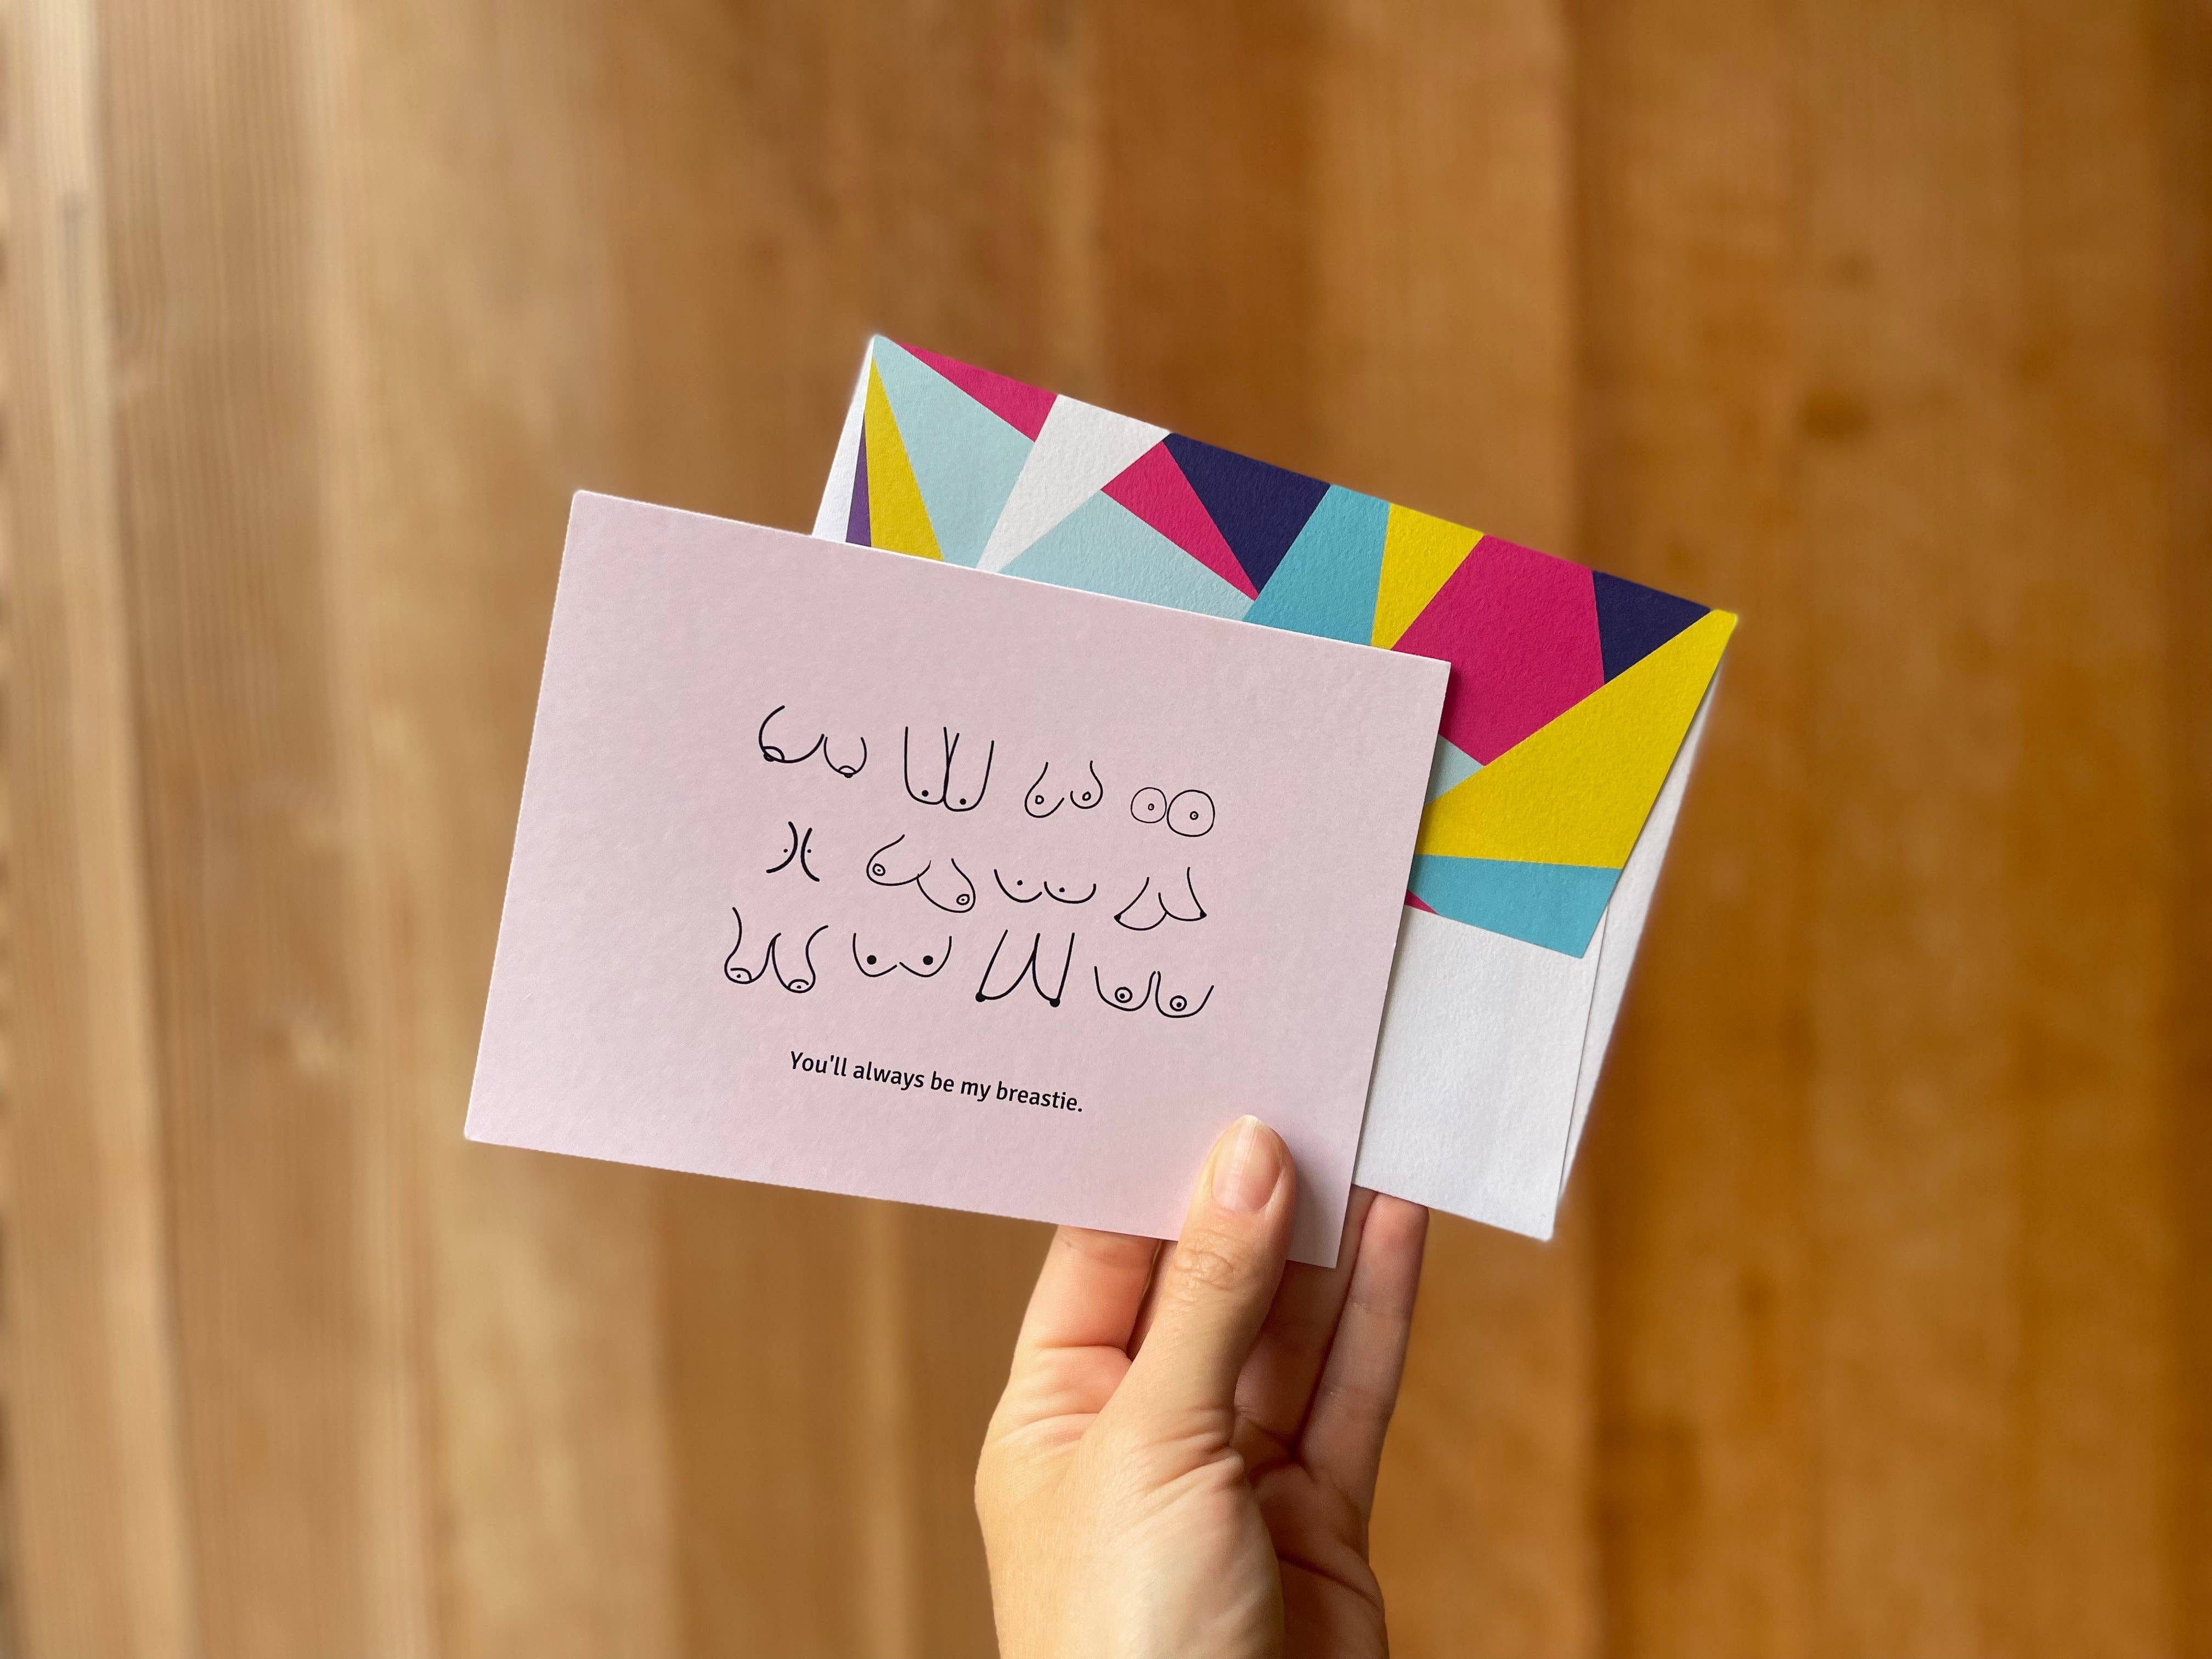 You'll always be my breastie.